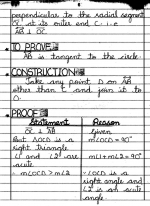 perpendicular to the radial segment
OC at its outer end C. i.e
AB ⊥ OC
TO PROVE
AB is tangent to the circle.
CONSTRUCTION
Take any point D on AB
other than C and join it to
O.
PROOF
Statement Reason
OC ⊥ AB Given
But ∆OCD is a m∠OCD = 90°
right triangle
∠1 and ∠2 are m∠1+m∠2 = 90°
acute
m∠OCD > m∠2 ∠OCD is a
right angle and
∠2 is an acute
angle